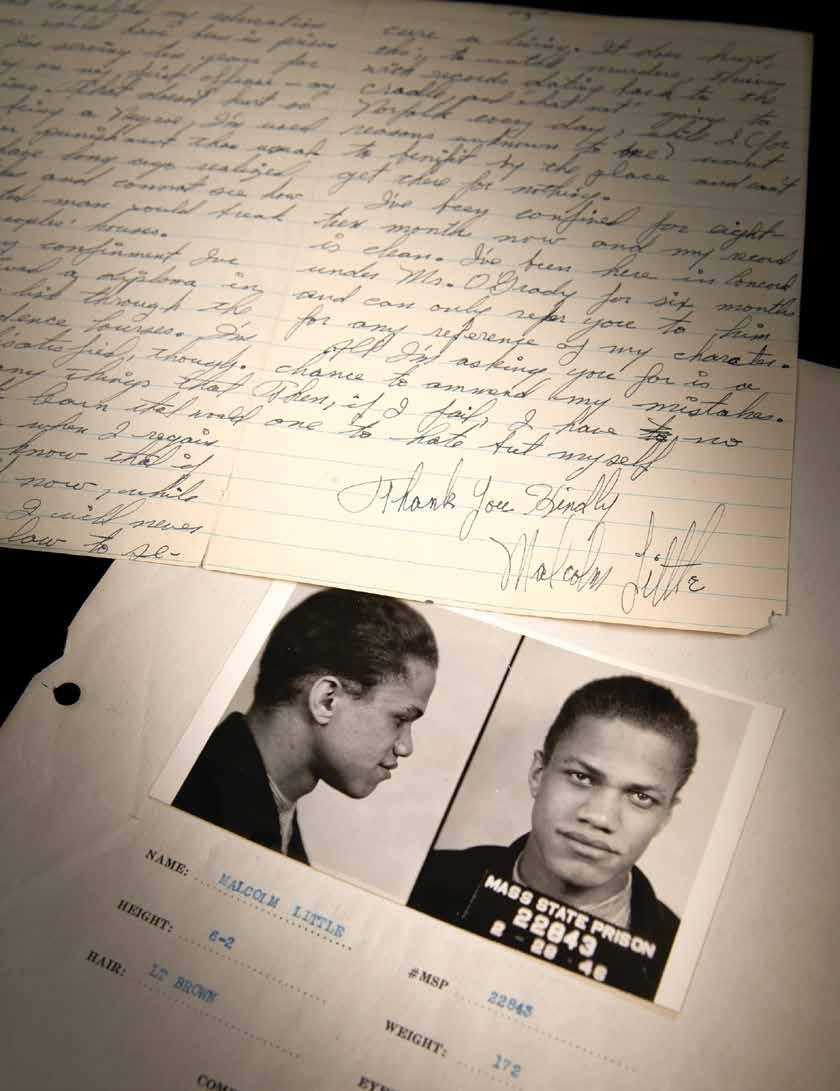 completed my education
would have been in prison
I'm serving ten years for
on my first offense - my
time. That doesn't hurt so
being a Negro, I'm used
punishment than usual
have long ago realized
and cannot see how
man would break
peoples' houses.
confinement I've
a diploma in
through the
courses. I'm
though.
many things that
learn that would
when I regain
know that if
now, while
I will never
law to se-
cure a living. It does hurt,
tho', to watch murders, thieves
with records dating back to the
cradle, and what not' going to
Norfolk every day, while I (for
reasons unknown to me) want
to benefit by the place and can't
get there for nothing.
I've been confined for eight-
teen months now and my record
is clean. I've been here in Concord
under Mr. O'Grady for six months
and can only refer you to him
for any reference of my charater.
All I'm asking you for is a
chance to ammend my mistakes.
Then, if I fail, I have to no
one to hate but myself
Thank You Kindly
Malcolm Little
MASS STATE PRISON
22843
2 - 28 - 46
NAME: MALCOLM LITTLE
HEIGHT: 6-2
HAIR: LT BROWN
#MSP 22843
WEIGHT: 172